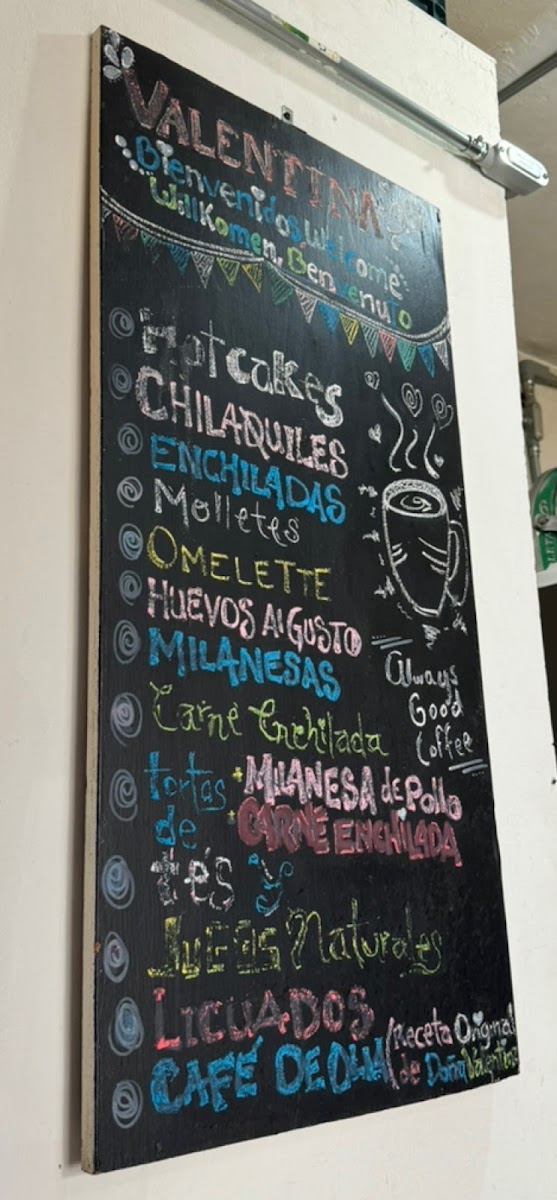 VALENTINA
Bienvenidos, Welcome
Willkomen, Benvenuto
Hotcakes
CHILAQUILES
ENCHILADAS
Molletes
OMELETTE
HUEVOS Al GUSTO
MILANESAS
Carne Enchilada
tortas de
• MILANESA de Pollo
• CARNE ENCHILADA
tés y
Jugos Naturales
LICUADOS
CAFÉ DE OLLA (Receta Original
de Doña Valentina
Always
Good
Coffee